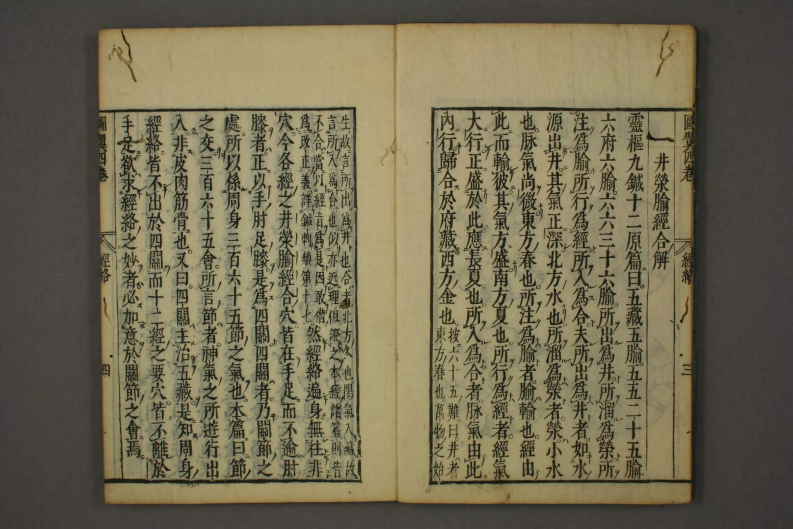 井滎腧經合解
靈樞九鍼十二原篇曰五藏五腧五五二十五腧
六府六腧六六三十六腧所出為井所溜為滎所
注為腧所行為經所入為合夫所出為井者如水
源出井其氣正深北方水也所溜為滎者滎小水
也脉氣尚微東方春也所注為腧者腧輸也經由
此而輸彼其氣方盛南方夏也所行為經者經氣
大行正盛於此應長夏也所入為合者脉氣由此
內行歸合於府藏西方金也
按六十五難曰井者
東方春也萬物之始
生故言所出為井也合者北方冬也陽氣入藏故
言所入為合也
不合當以經言為
然經絡遍身無往非
穴今各經之井滎腧經合穴皆在手足而不逾肘
膝者正以手肘足膝是為四關四關者乃關節之
處所以係周身三百六十五節之氣也本篇曰節
之交三百六十五會所言節者神氣之所遊行出
入非皮肉筋骨也又曰四關主治五藏是知周身
經絡皆不出於四關而十二經之要穴皆不離於
手足欲求經絡之妙者必加意於關節之會焉
圖翼四卷
經絡
三
圖翼四卷
經絡
四